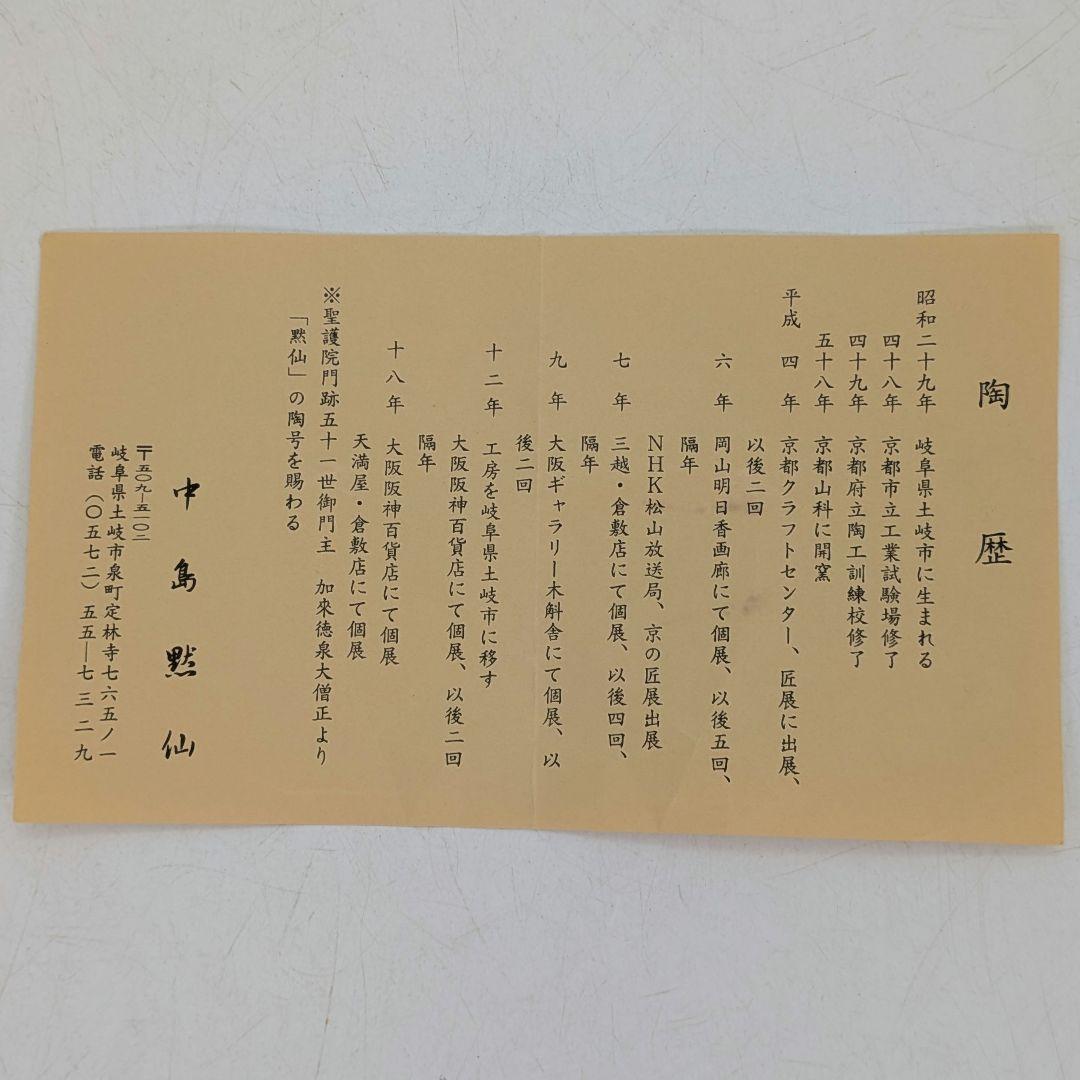 陶歴
昭和二十九年 岐阜県土岐市に生まれる
四十八年 京都市立工業試験場修了
四十九年 京都府立陶工訓練校修了
五十八年 京都山科に開窯
平成 四年 京都クラフトセンター、匠展に出展、
以後二回
六年 岡山明日香画廊にて個展、以後五回、
隔年
NHK松山放送局、京の匠展出展
七年 三越・倉敷店にて個展、以後四回、
隔年
九年 大阪ギャラリー木斛舎にて個展、以
後二回
十二年 工房を岐阜県土岐市に移す
大阪阪神百貨店にて個展、以後二回
隔年
十八年 大阪阪神百貨店にて個展
天満屋・倉敷店にて個展
※聖護院門跡五十一世御門主 加來徳泉大僧正より
「黙仙」の陶号を賜わる
中島黙仙
〒五〇九―五一〇二
岐阜県土岐市泉町定林寺七六五ノ一
電話(〇五七二)五五―七三二九